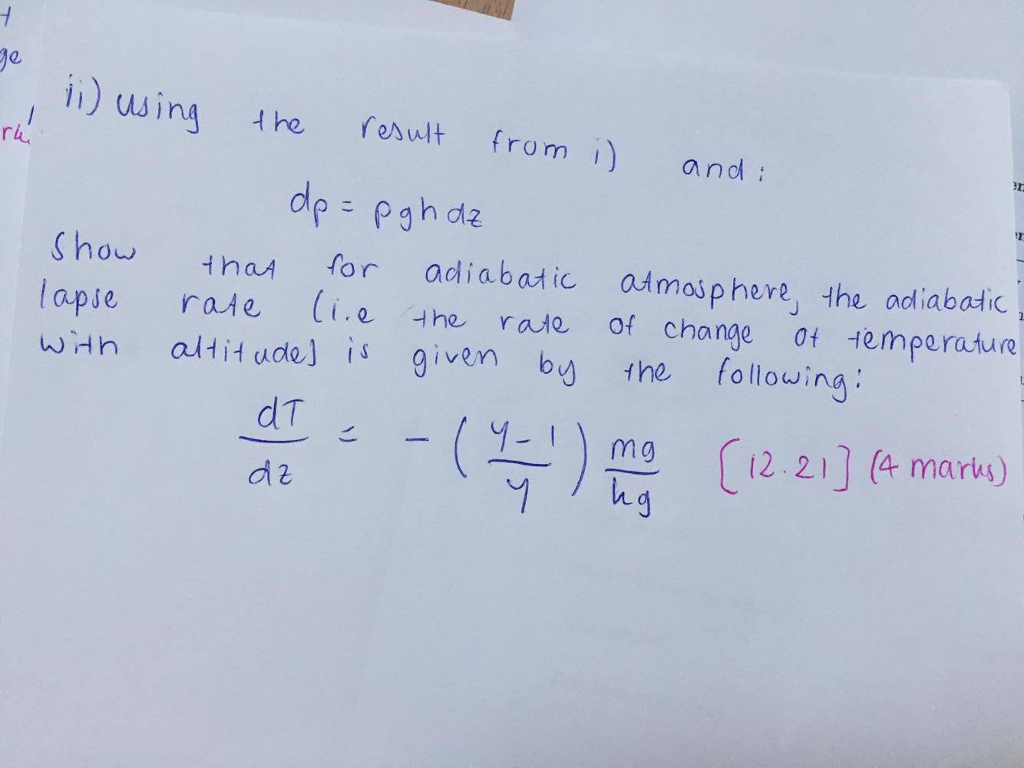 t
ge
rk.
ii) using the result from i) and:
dp = ρgh dz
Show that for adiabatic atmosphere, the adiabatic
lapse rate (i.e the rate of change of temperature
with altitude) is given by the following:
dT/dz = - (γ-1/γ) mg/kg [12.21] (4 marks)